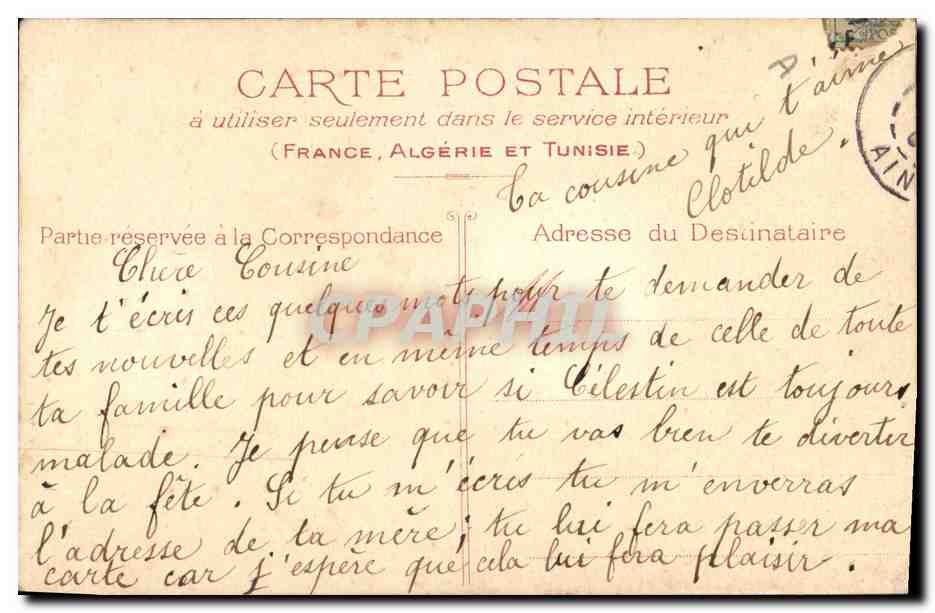 CARTE POSTALE
à utiliser seulement dans le service intérieur
(FRANCE, ALGÉRIE ET TUNISIE)
Ta cousine qui t'aime
Clotilde.
AIN
Partie réservée à la Correspondance
Adresse du Destinataire
Chère Cousine
Je t'écris ces quelques mots pour te demander de
tes nouvelles et en même temps de celle de toute
ta famille pour savoir si Célestin est toujours
malade. Je pense que tu vas bien te divertir
à la fête. Si tu m'écris tu m'enverras
l'adresse de ta mère; tu lui fera passer ma
carte car j'espère que cela lui fera plaisir.
CPAPHIL